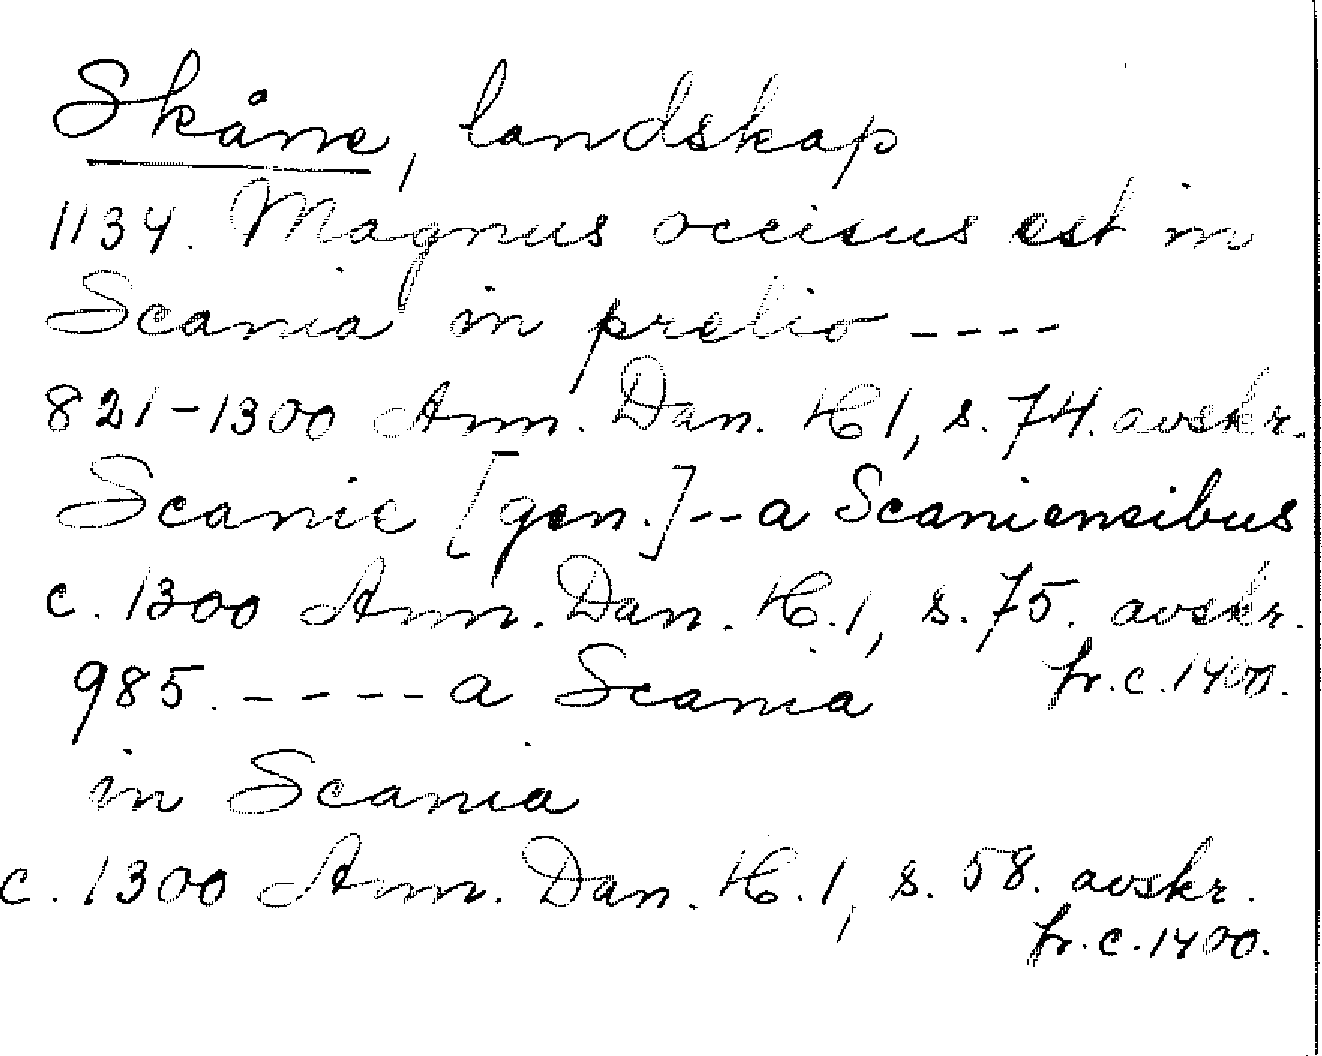 Skåne, landskap
1134. Magnus occisus est in
Scania in prelio ----
821-1300 Ann. Dan. H 1, s. 74. avskr.
Scanie [gen.]--a Scaniensibus
c. 1300 Ann. Dan. H. 1, s. 75. avskr.
fr. c. 1400.
985. ---- a Scania
in Scania
c. 1300 Ann. Dan. H. 1, s. 58. avskr.
fr. c. 1400.